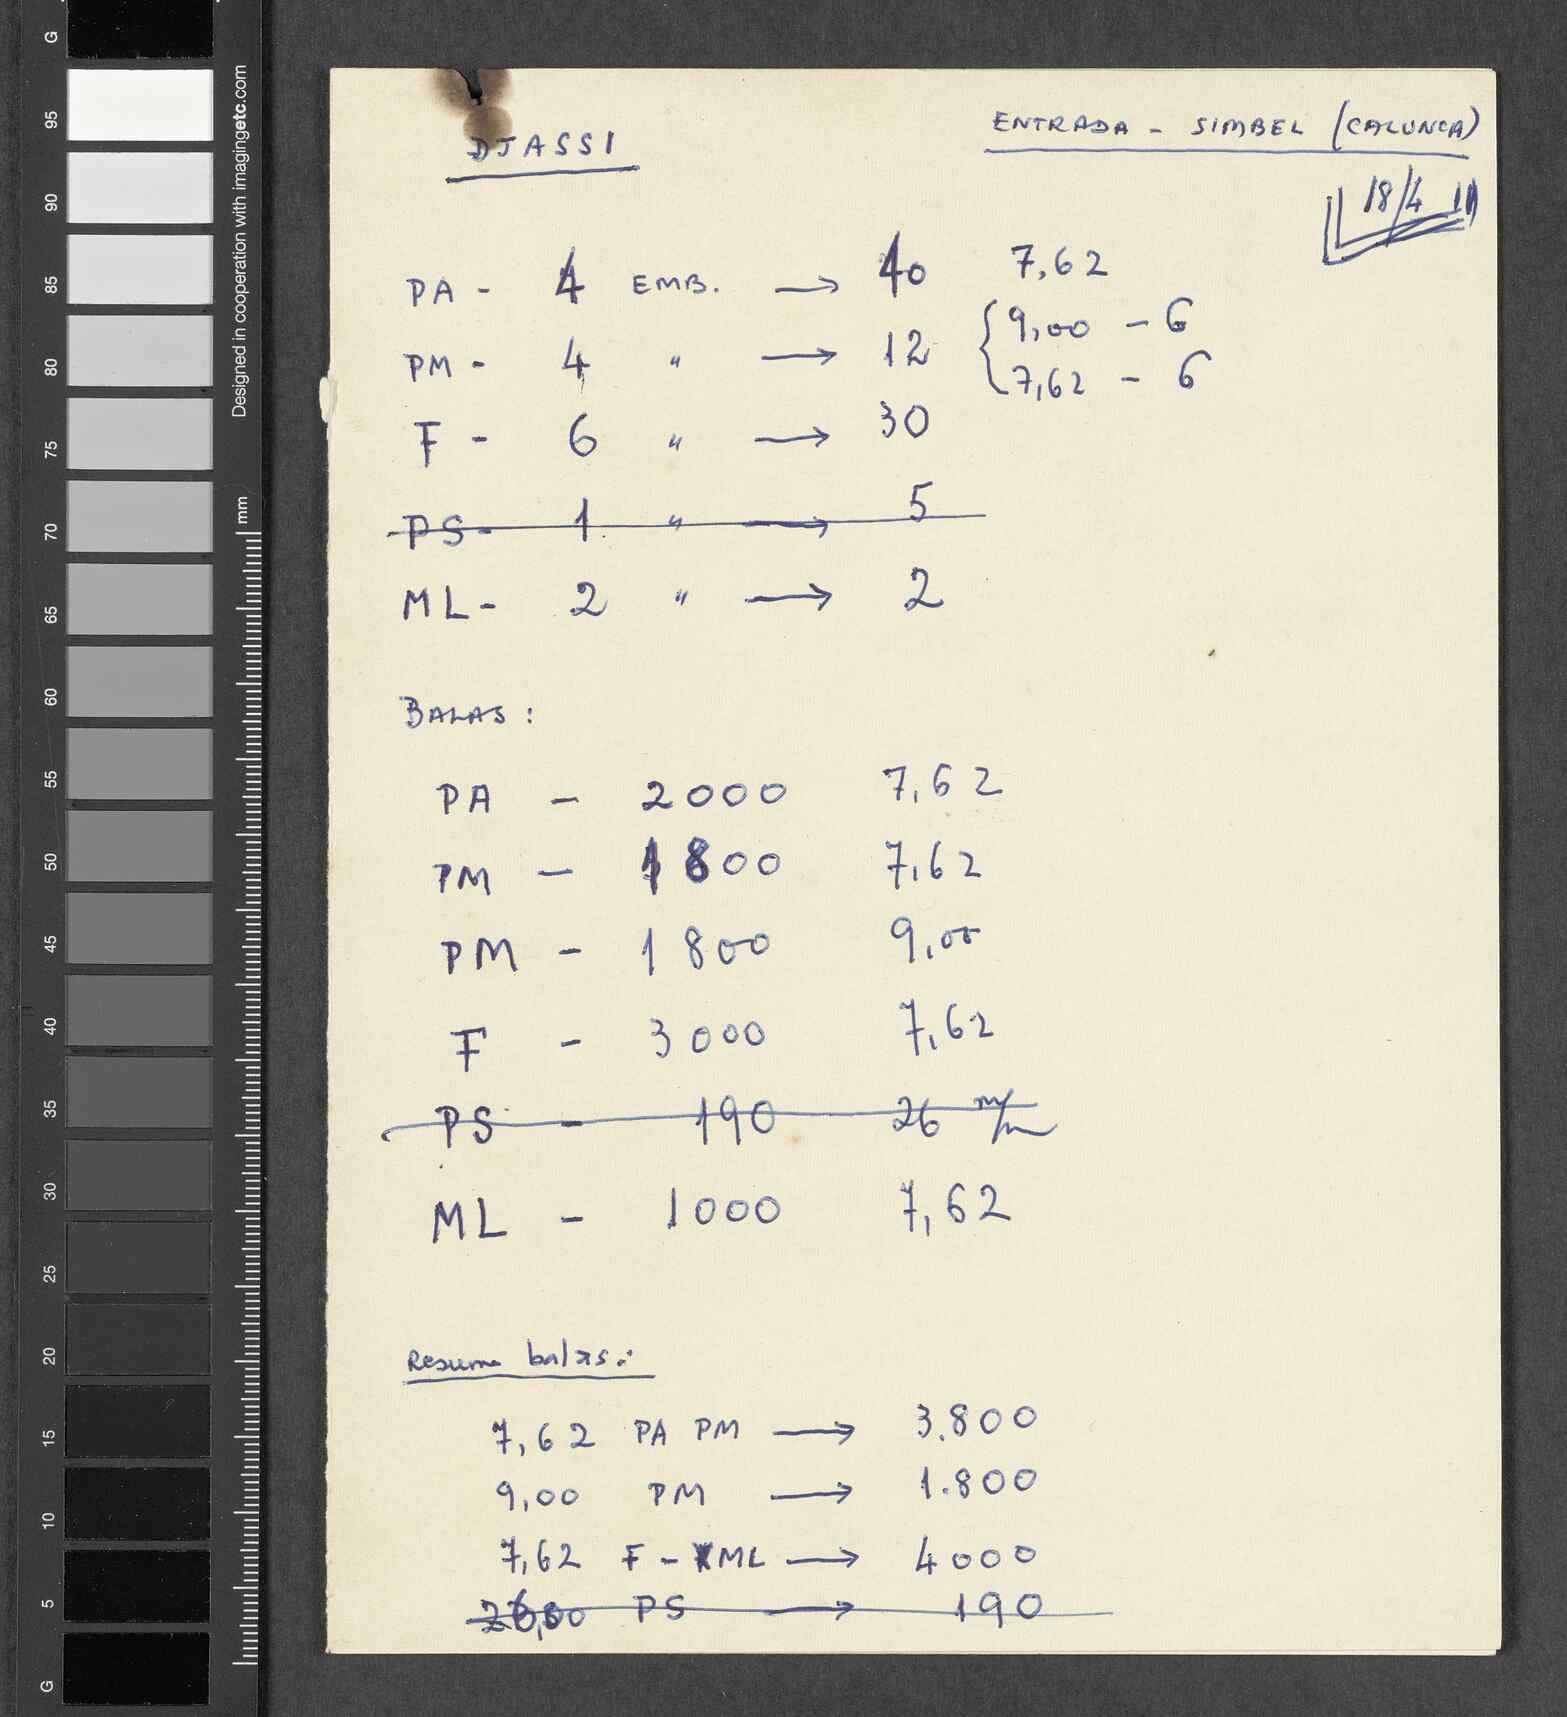 DJASSI
ENTRADA - SIMBEL (CALUNCA)
18/4
PA - 4 EMB. → 40 7,62
PM - 4 " → 12 { 9,00 - 6
7,62 - 6
F - 6 " → 30
PS - 1 " → 5
ML - 2 " → 2
BALAS :
PA - 2000 7,62
PM - 1800 7,62
PM - 1800 9,00
F - 3000 7,62
PS - 190 26 m/m
ML - 1000 7,62
Resumo balas:
7,62 PA PM → 3.800
9,00 PM → 1.800
7,62 F - ML → 4000
26,00 PS → 190
Designed in cooperation with imagingetc.com
mm
G
95
90
85
80
75
70
65
60
55
50
45
40
35
30
25
20
15
10
5
G